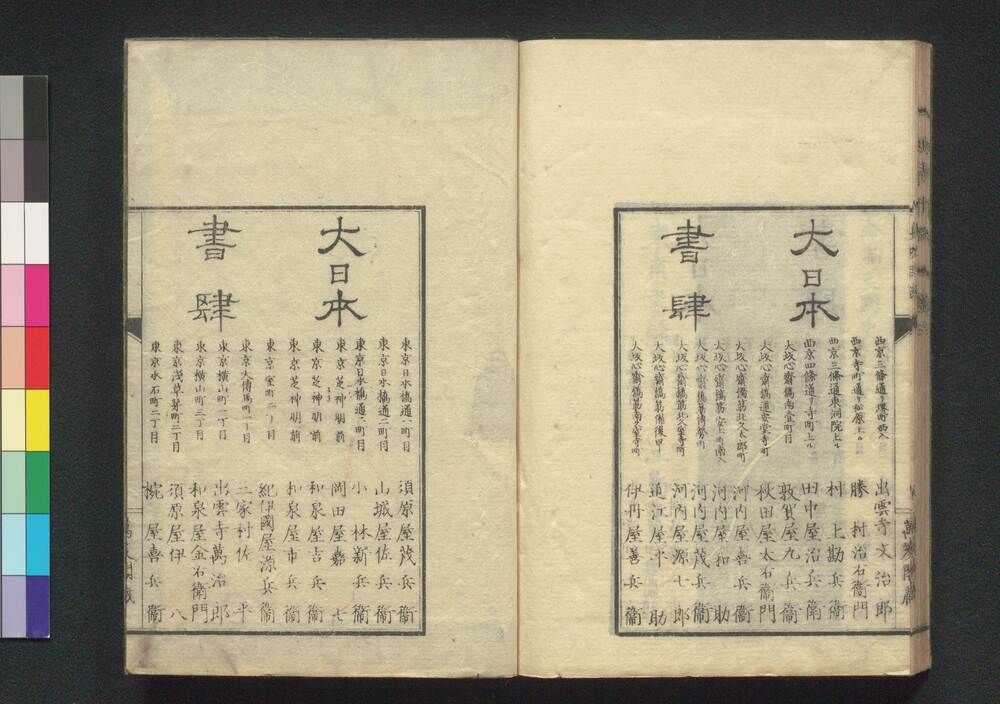 大日本
書肆
西京三條通リ堺町西入 出雲寺文治郎
西京寺町通リ松原上ル 勝村治右衞門
西京三條通東洞院上ル 村上勘兵衞
西京四條通リ寺町上ル 田中屋治兵衞
大坂心齋橋南壹町目 敦賀屋九兵衞
大坂心齋橋通安堂寺町 秋田屋太右衞門
大坂心齋橋筋北久太郎町 河内屋喜兵衞
大坂心齋橋筋安土町南入 河内屋和助
大坂心齋橋筋博勞町 河内屋茂兵衞
大坂心齋橋筋北久宝寺町 河内屋源七郎
大坂心齋橋筋備後町 近江屋平助
大坂心齋橋筋南久宝寺町 伊丹屋善兵衞
大日本
書肆
東京日本橋通一町目 須原屋茂兵衞
東京日本橋通二町目 山城屋佐兵衞
東京日本橋通二町目 小林新兵衞
東京芝神明前 岡田屋嘉七
東京芝神明前 和泉屋吉兵衞
東京芝神明前 和泉屋市兵衞
東京室町二丁目 紀伊國屋源兵衞
東京大傳馬町二丁目 三家村佐平
東京橫山町一丁目 出雲寺萬治郎
東京橫山町三丁目 和泉屋金右衞門
東京淺草茅町二丁目 須原屋伊八
東京本石町二丁目 椀屋喜兵衞